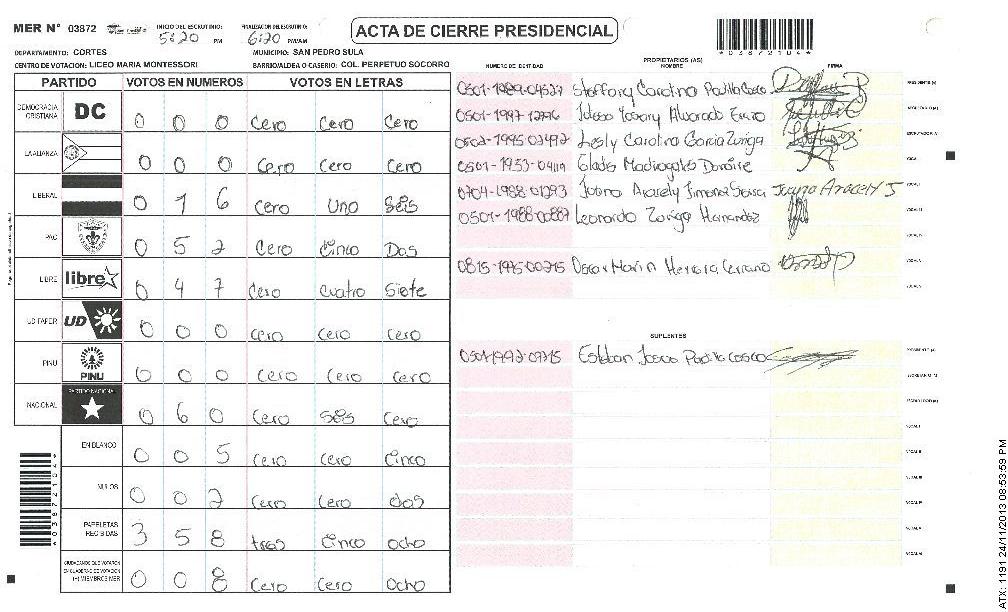 MER N° 03872 INICIO DEL ESCRUTINIO: 5:20 PM FINALIZACION DEL ESCRUTINIO: 6:20 PM/AM ACTA DE CIERRE PRESIDENCIAL
DEPARTAMENTO: CORTES MUNICIPIO: SAN PEDRO SULA
CENTRO DE VOTACION: LICEO MARIA MONTESSORI BARRIO/ALDEA O CASERIO: COL. PERPETUO SOCORRO
*03872104*
PARTIDO VOTOS EN NUMEROS VOTOS EN LETRAS
DEMOCRACIA CRISTIANA DC 0 0 0 Cero Cero Cero
LA ALIANZA 0 0 0 Cero Cero Cero
LIBERAL 0 1 6 Cero Uno Seis
PAC 0 5 2 Cero Cinco Dos
LIBRE libre 0 4 7 Cero Cuatro Siete
UD FAPER UD 0 0 0 Cero Cero Cero
PINU PINU 0 0 0 Cero Cero Cero
NACIONAL PARTIDO NACIONAL 0 6 0 Cero Seis Cero
EN BLANCO 0 0 5 Cero Cero Cinco
NULOS 0 0 2 Cero Cero dos
PAPELETAS RECIBIDAS 3 5 8 tres Cinco Ocho
CIUDADANOS QUE VOTARON EN CUADERNO DE VOTACION (+) MIEMBROS MER 0 0 8 Cero Cero Ocho
PROPIETARIOS (AS)
NUMERO DE IDENTIDAD NOMBRE FIRMA
0501-1989-04527 Carolina Padilla PRESIDENTE (A)
0501-1997-12776 Alvarado
0502-1995-02492 Lesly Carolina Garcia Zuniga
0501-1953-04119 Gladis Madrigales
0704-1988-01293 Juana Aracely Jimenez Juana Aracely J
0501-1988-00887 Leonardo Zuniga Hernandez
0815-1975-00215 Oscar Marin Herrera
SUPLENTES
Esteban Josue Padilla PRESIDENTE (A)
ATX: 1191 24/11/2013 08:53:59 PM